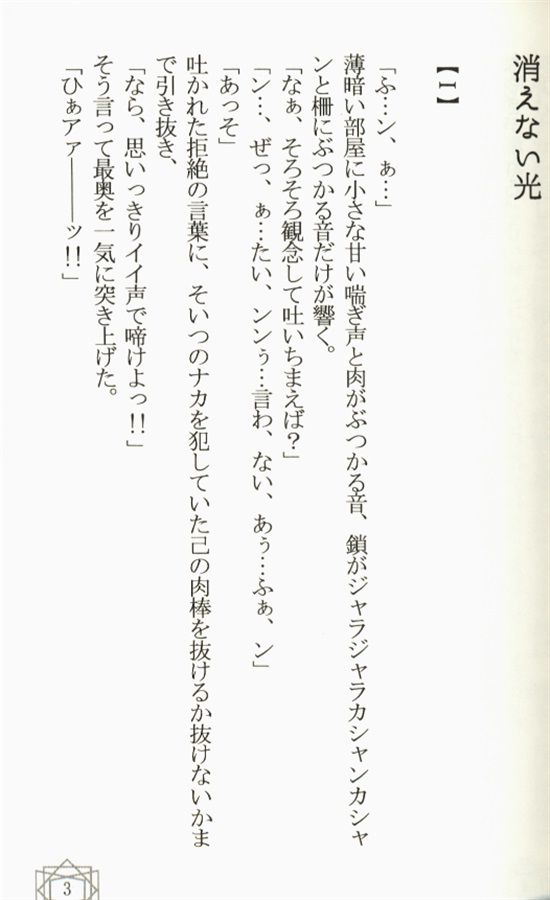 消えない光
【Ⅰ】
「ふ…ン、ぁ…」
薄暗い部屋に小さな甘い喘ぎ声と肉がぶつかる音、鎖がジャラジャラカシャンカシャ
ンと柵にぶつかる音だけが響く。
「なぁ、そろそろ観念して吐いちまえば？」
「ン…、ぜっ、ぁ…たい、ンンぅ…言わ、ない、あぅ…ふぁ、ン」
「あっそ」
吐かれた拒絶の言葉に、そいつのナカを犯していた己の肉棒を抜けるか抜けないかま
で引き抜き、
「なら、思いっきりイイ声で啼けよっ!!」
そう言って最奥を一気に突き上げた。
「ひぁアァ――ッ!!」
3